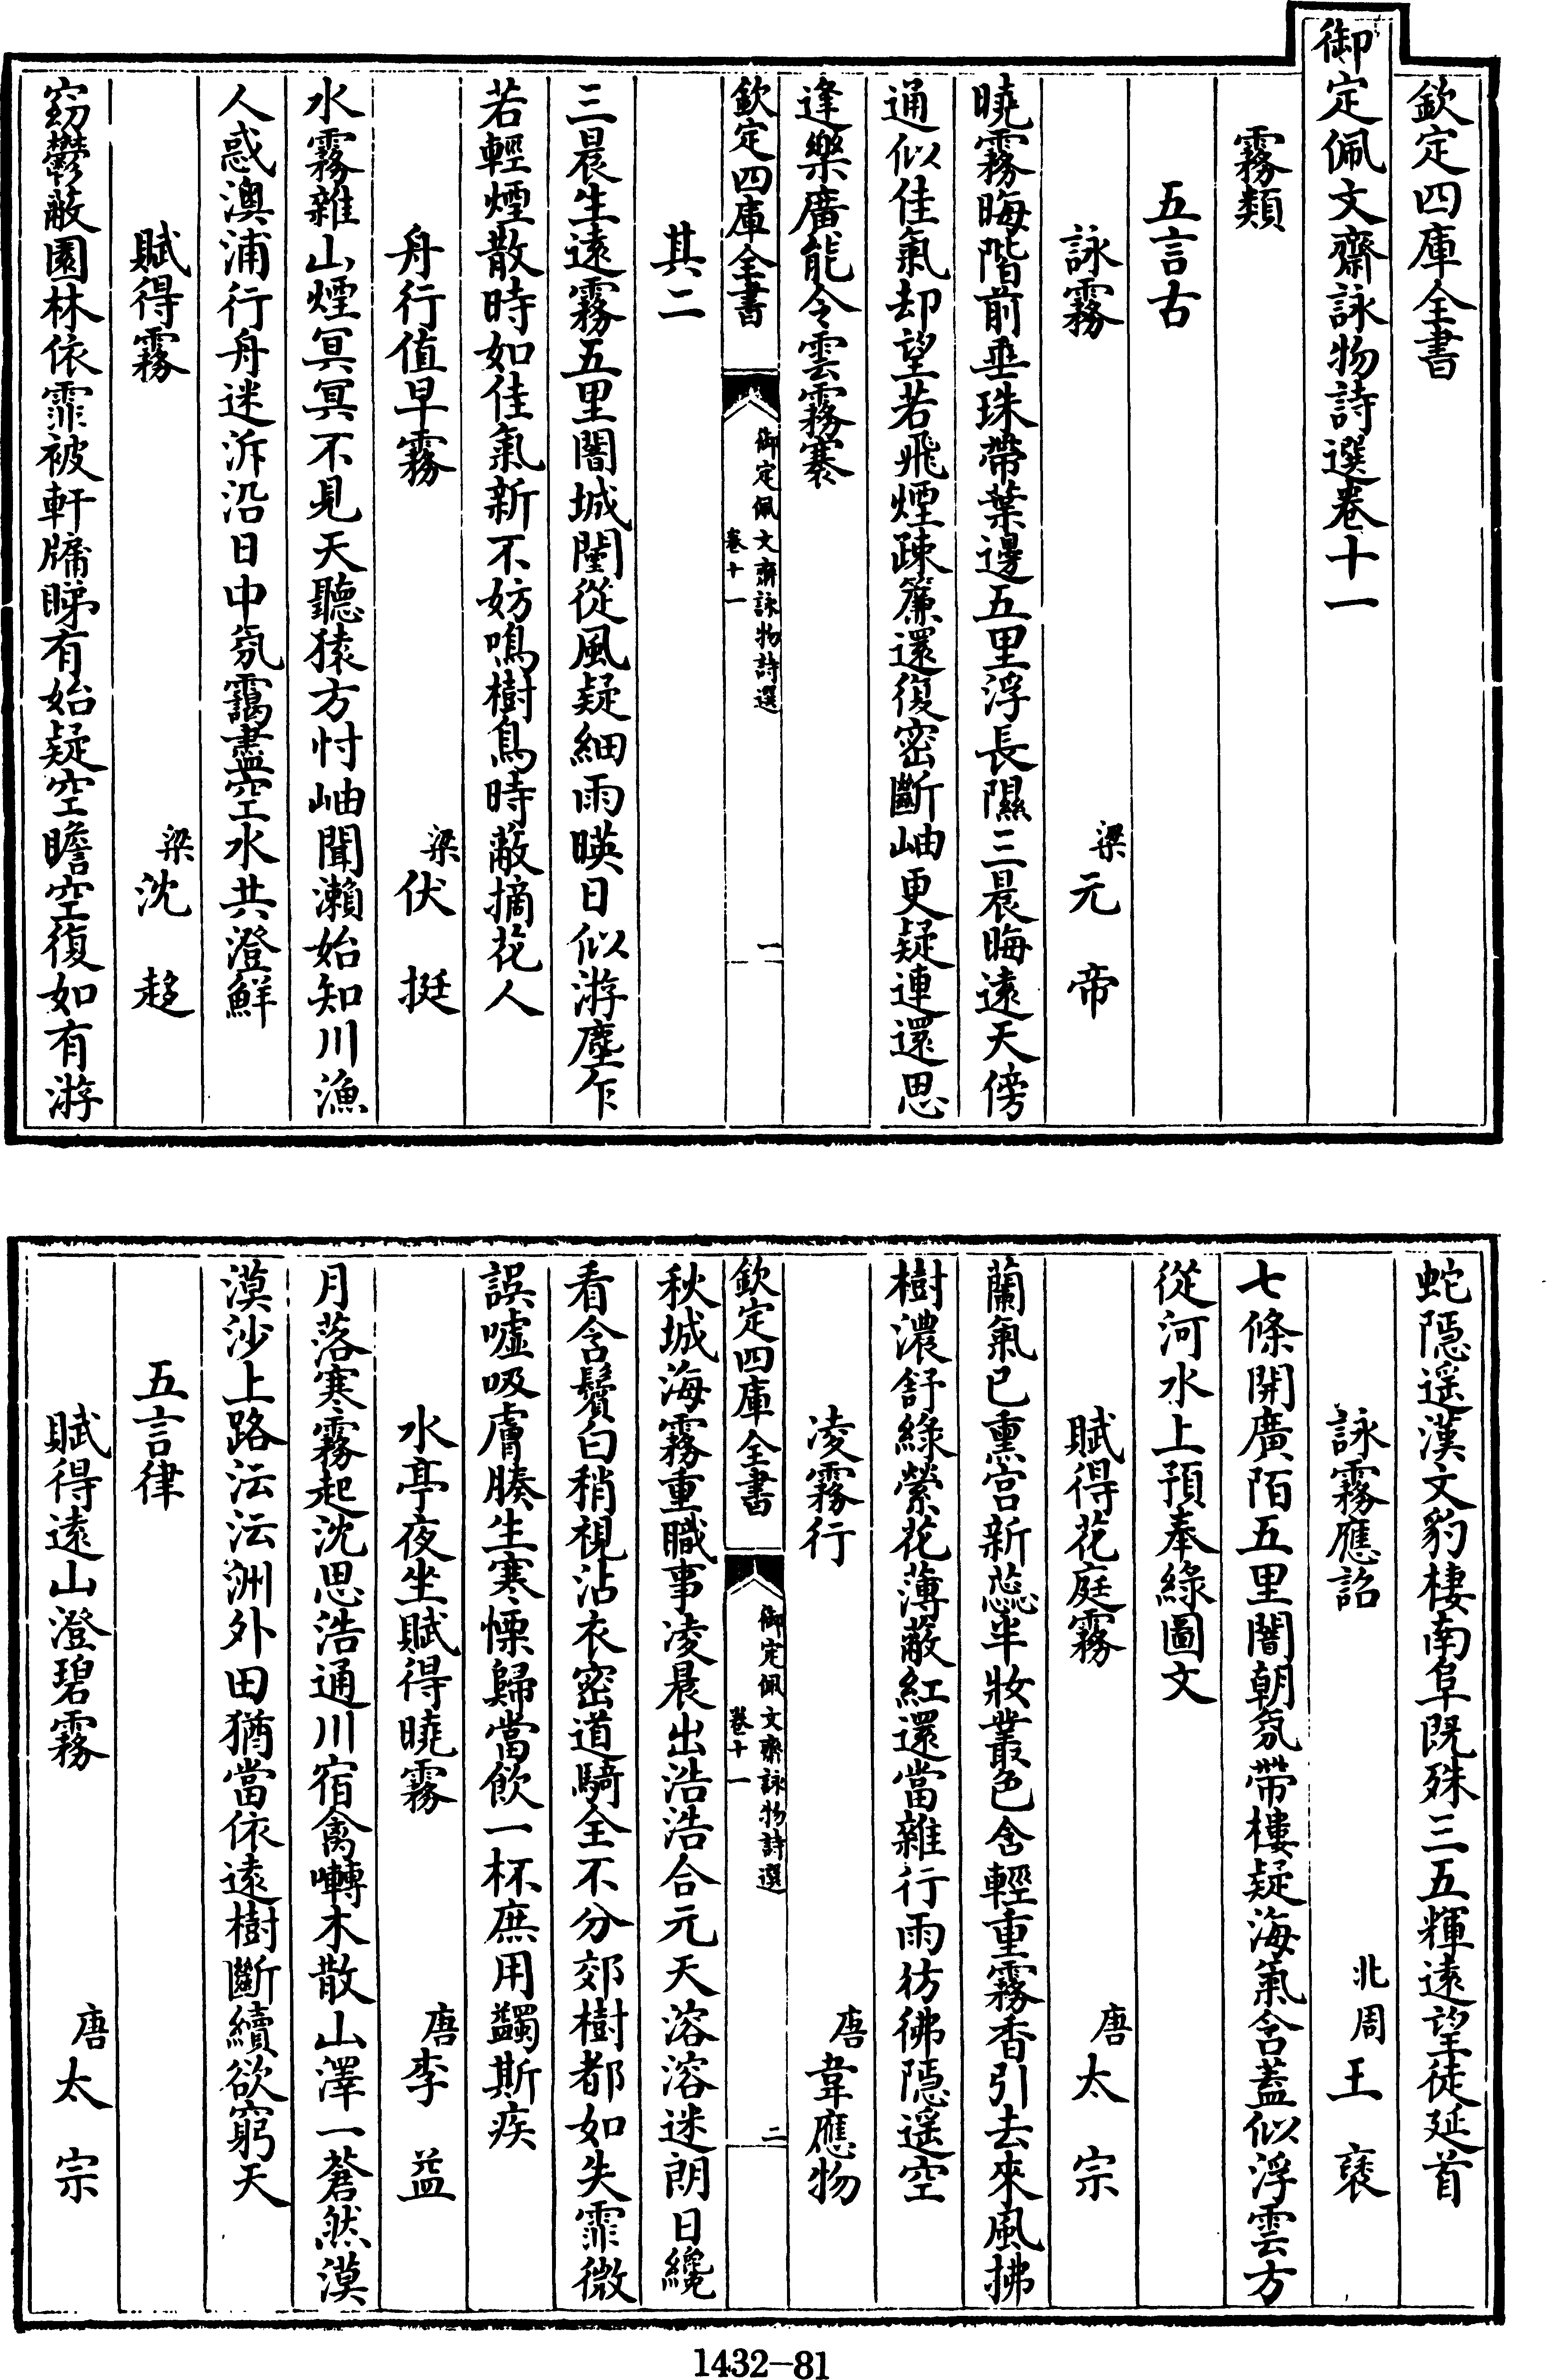 欽定四庫全書
御定佩文齋詠物詩選卷十一
霧類
五言古
詠霧　梁元帝
曉霧晦階前垂珠帶葉邊五里浮長隰三晨晦遠天傍
通似佳氣却望若飛煙踈簾還復密斷岫更疑連還思
逢樂廣能令雲霧褰
欽定四庫全書　御定佩文齋詠物詩選　卷十一　一
其二
三晨生遠霧五里闇城闉從風疑細雨暎日似游塵乍
若輕煙散時如佳氣新不妨鳴樹鳥時蔽摘花人
舟行值早霧　梁伏挺
水霧雜山煙冥冥不見天聽猿方忖岫聞瀨始知川漁
人惑澳浦行舟迷泝沿日中氛靄盡空水共澄鮮
賦得霧　梁沈趍
窈鬱蔽園林依霏被軒牖睇有始疑空瞻空復如有游
蛇隱遥漢文豹棲南阜既殊三五輝遠望徒延首
詠霧應詔　北周王襃
七條開廣陌五里闇朝氛帶樓疑海氣含蓋似浮雲方
從河水上預奉綠圖文
賦得花庭霧　唐太宗
蘭氣已熏宫新蕊半妝叢色含輕重霧香引去來風拂
樹濃舒綠縈花薄蔽紅還當雜行雨彷彿隱遥空
凌霧行　唐韋應物
欽定四庫全書　御定佩文齋詠物詩選　卷十一　二
秋城海霧重職事凌晨出浩浩合元天溶溶迷朗日纔
看含鬢白稍視沾衣密道騎全不分郊樹都如失霏微
誤噓吸膚腠生寒慄歸當飲一杯庶用蠲斯疾
水亭夜坐賦得曉霧　唐李益
月落寒霧起沈思浩通川宿禽囀木散山澤一蒼然漠
漠沙上路沄沄洲外田猶當依遠樹斷續欲窮天
五言律
賦得遠山澄碧霧　唐太宗
1432—81